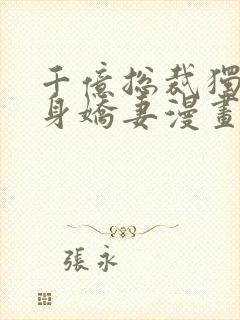 千億總裁獨
身嬌妻漫畫
張永